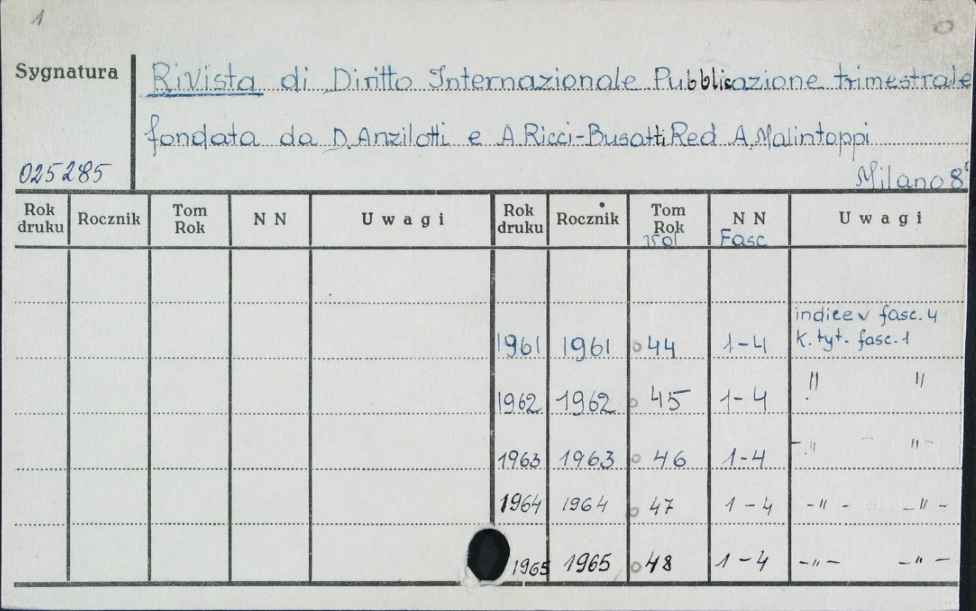 1
Sygnatura
Rivista di Diritto Internazionale Pubblicazione trimestrale
fondata da D. Anzilotti e A. Ricci-Busatti Red A. Malintoppi
025285
Milano 8°
Rok druku Rocznik Tom Rok NN Uwagi Rok druku Rocznik Tom Rok vol NN Fasc Uwagi
indice v fasc. 4
1961 1961 44 1-4 k. tyt. fasc. 1
1962 1962 45 1-4 " "
1963 1963 46 1-4 -"- -"-
1964 1964 47 1-4 -"- -"-
1965 1965 48 1-4 -"- -"-